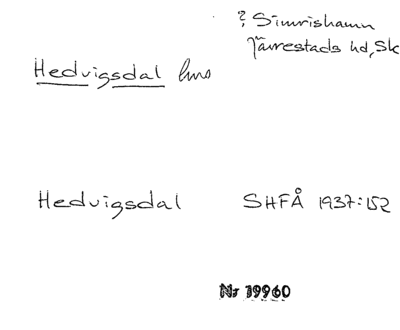 ? Simrishamn
Järrestads hd, Sk
Hedvigsdal hus
Hedvigsdal SHFÅ 1937:152
Nr 19960